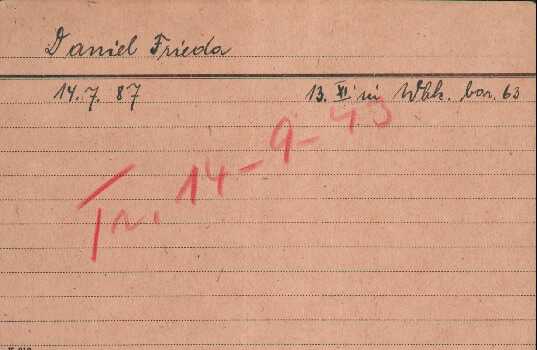 Daniel Frieda
14.7.87 13. XI in Wbk. bar. 63
Tr. 14-9-43